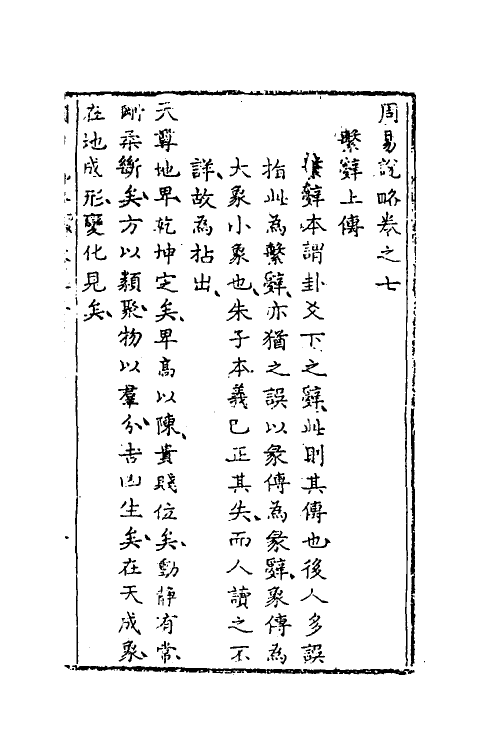 周易說略卷之七
繫辭上傳
繫辭本謂卦爻下之辭、此則其傳也、後人多誤
指此為繫辭、亦猶之誤以彖傳為彖辭、象傳為
大象小象也、朱子本義已正其失、而人讀之不
詳、故為拈出、
天尊地卑、乾坤定矣、卑高以陳、貴賤位矣、動靜有常、
剛柔斷矣、方以類聚、物以羣分、吉凶生矣、在天成象、
在地成形、變化見矣、